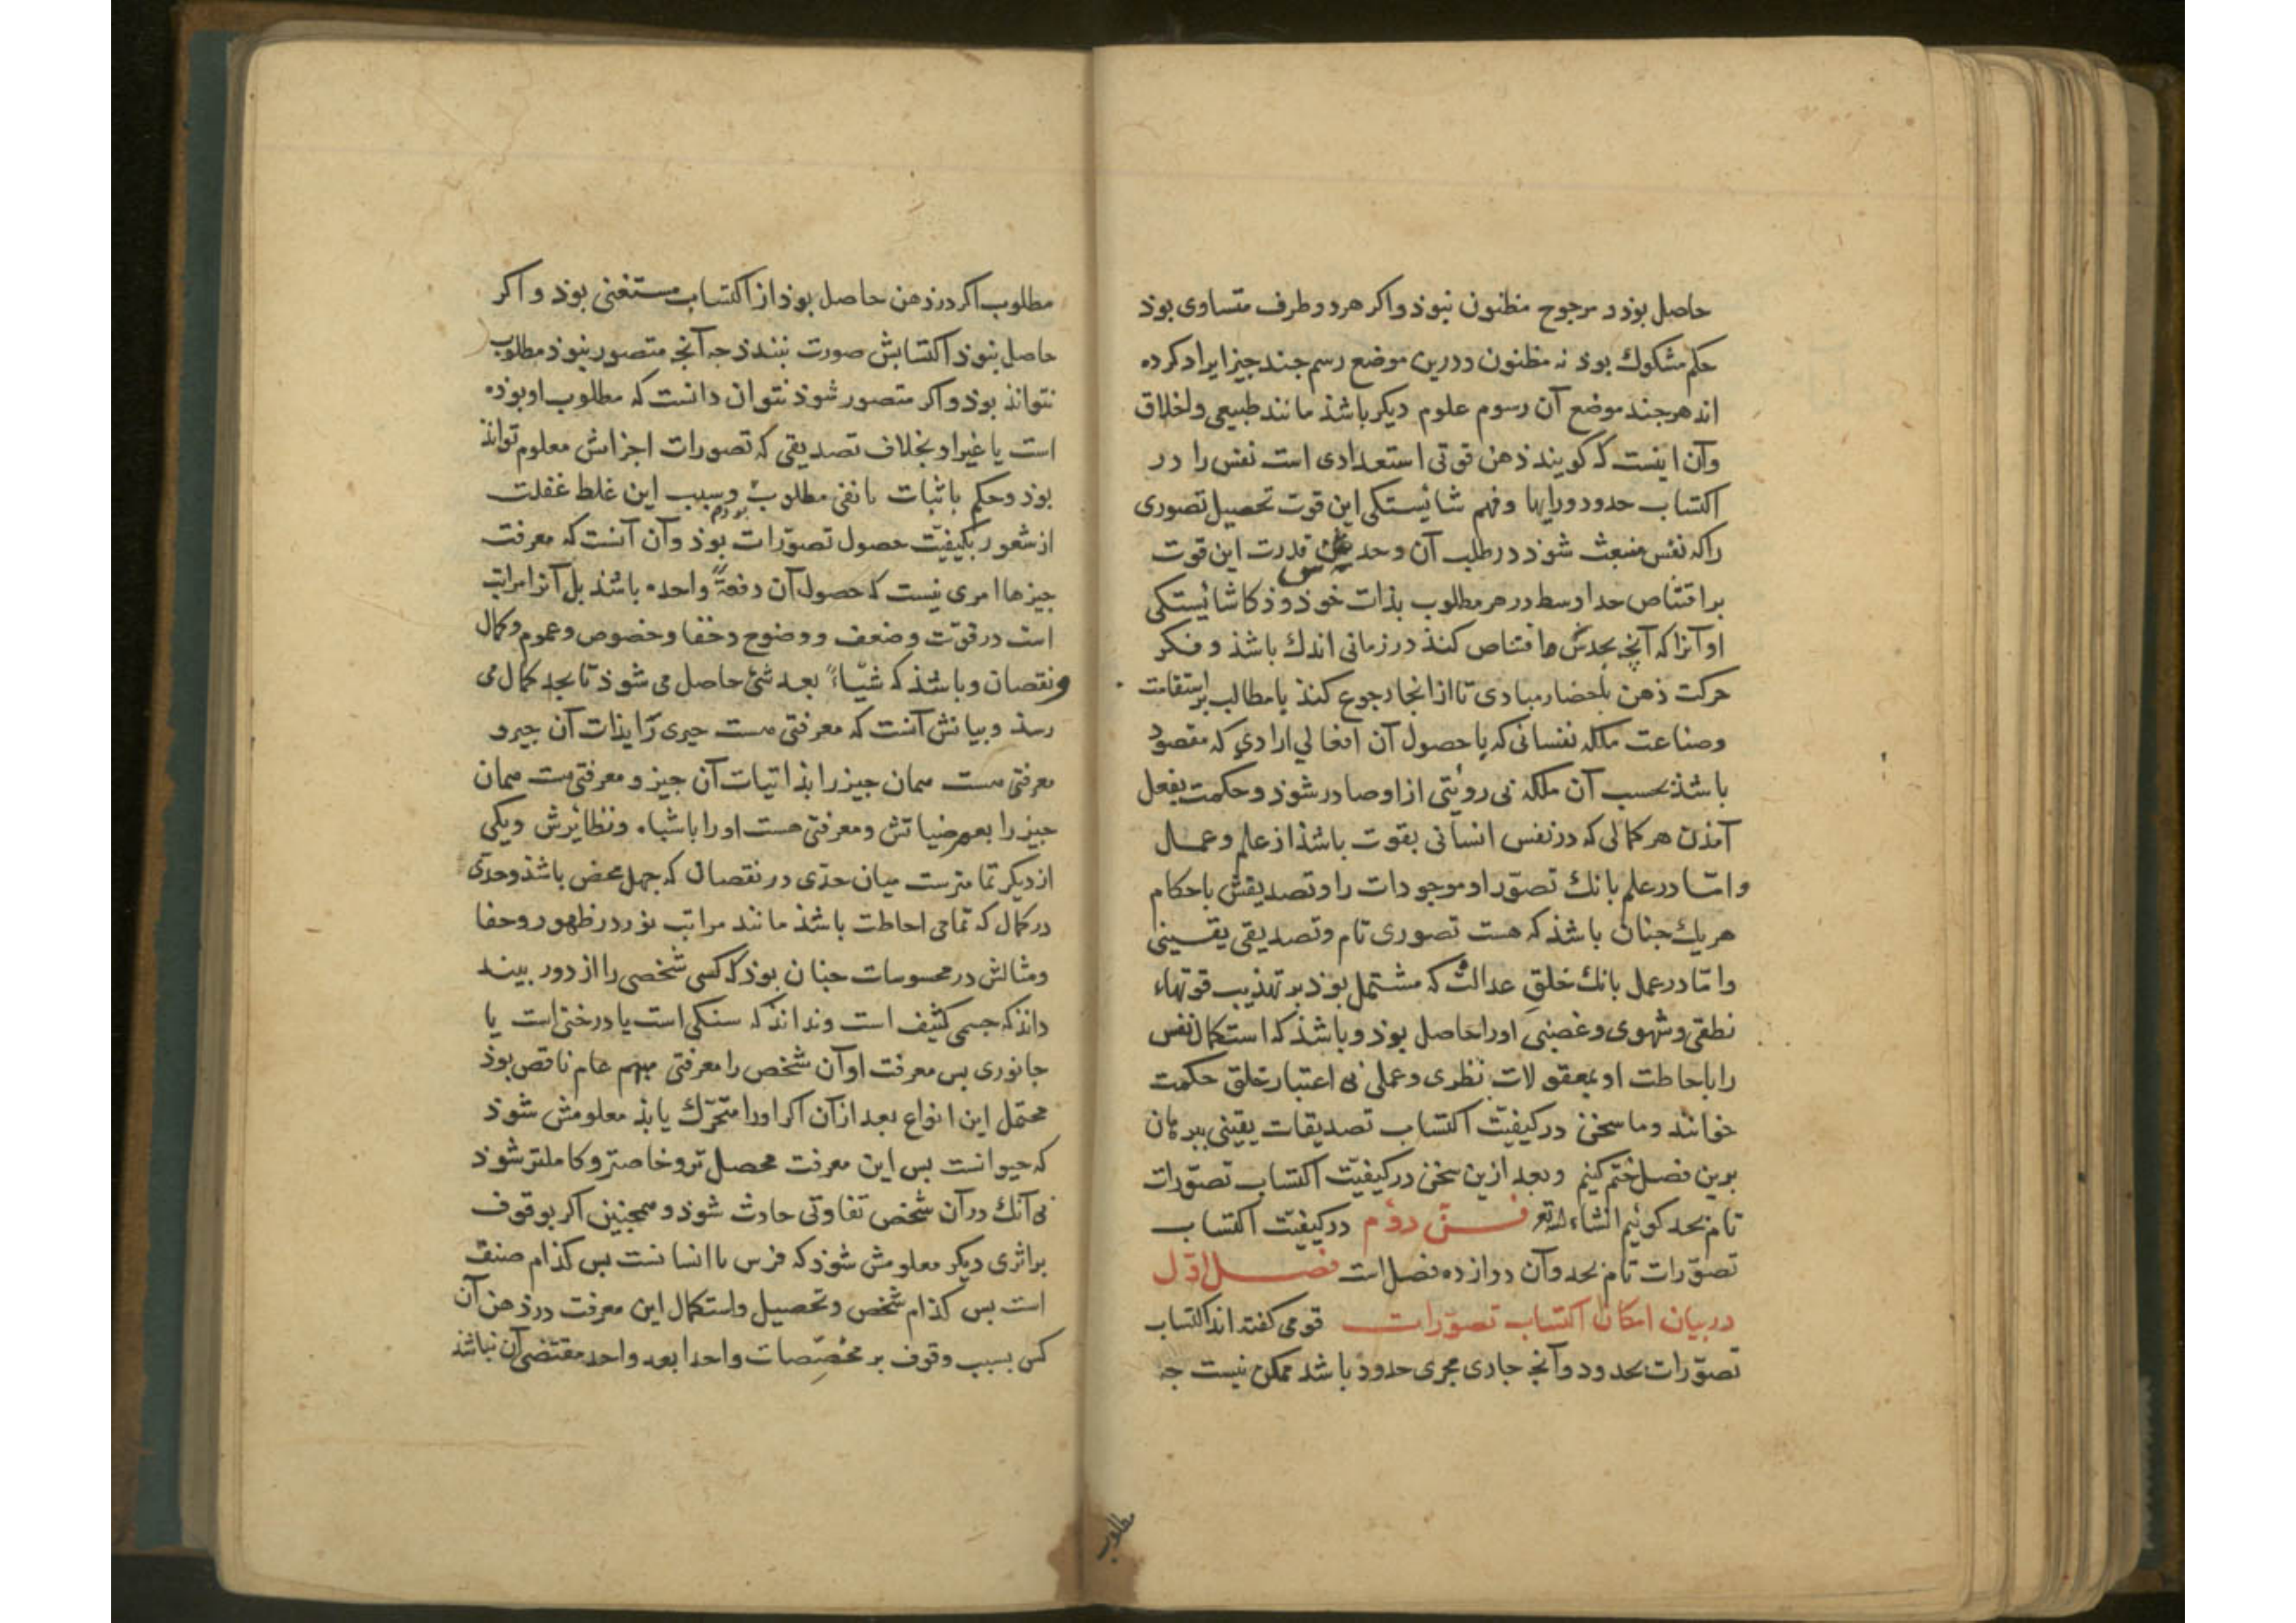 حاصل بوذ و مرجوح مظنون نبوذ واكر هر دو طرف متساوى بوذ
حكم مشكوك بوذ نه مظنون ودرين موضع رسم جند جيز ايراد كرده
اند هرجند موضع آن رسوم علوم ديكر باشذ مانند طبيعى واخلاق
وآن اينست كه كويند ذهن قوتى استعدادى است نفس را در
اكتساب حدود و رايها وفهم شايستكى اين قوت تحصيل تصورى
را كه نفس منبعث شوذ در طلب آن وحدس قدرت اين قوت
بر اقتناص حد اوسط در هر مطلوب بذات خوذ وذكا شايستكى
او آنرا كه آنچه بحدس اقتناص كنذ در زمانى اندك باشذ وفكر
حركت ذهن باحضار مبادى تا از انجا رجوع كنذ با مطالب بر استقامت
وصناعت ملكه نفسانى كه با حصول آن افعالي ارادي كه مقصود
باشذ بحسب آن ملكه بى رويتى ازاو صادر شوذ وحكمت بفعل
آمذن هر كمالى كه در نفس انسانى بقوت باشذ از علم وعمل
واما در علم بانك تصور او موجودات را وتصديقش باحكام
هريك جنان باشذ كه هست تصورى تام وتصديقى يقينى
واما در عمل بانك خلق عدالت كه مشتمل بوذ بر تهذيب قوتهاء
نطقى وشهوى وغضبى اورا حاصل بوذ وباشذ كه استكمال نفس
را باحاطت او بمعقولات نظرى وعملى بى اعتبار خلق حكمت
خوانند وما سخن در كيفيت اكتساب تصديقات يقينى ببرهان
برين فصل ختم كنيم وبعد ازين سخن در كيفيت اكتساب تصورات
تام بحد كوئيم انشاء الله تع فن دوم در كيفيت اكتساب
تصورات تام بحد وآن دوازده فصل است فصل اول
در بيان امكان اكتساب تصورات قومى كفته اند اكتساب
تصورات بحدود وآنچ جارى مجرى حدود باشد ممكن نيست جه
مطلوب
مطلوب اكر در ذهن حاصل بوذ از اكتساب مستغنى بوذ واكر
حاصل نبوذ اكتسابش صورت نبندذ جه آنچ متصور نبوذ مطلوب
نتواند بوذ واكر متصور شوذ نتوان دانست كه مطلوب او بوذه
است يا غير او بخلاف تصديقى كه تصورات اجزاش معلوم تواند
بوذ وحكم باثبات يا نفى مطلوب وسبب اين غلط غفلت
از شعور بكيفيت حصول تصورات بوذ وآن آنست كه معرفت
جيزها امرى نيست كه حصول آن دفعة واحده باشذ بل آنرا مراتب
است در قوت وضعف ووضوح وخفا وخصوص وعموم وكمال
ونقصان وباشذ كه شياء بعد شئ حاصل مى شوذ تا بحد كمال مى
رسذ وبيانش آنست كه معرفتى هست جيزى را بذات آن جيز و
معرفتى هست همان جيز را بذاتيات آن جيز ومعرفتى هست همان
جيز را بعرضياتش ومعرفتى هست اورا باشباه ونظائرش ويكى
از ديكر تمامترست ميان حدى در نقصان كه جهل محض باشذ وحدى
در كمال كه تمامى احاطت باشذ مانند مراتب نور در ظهور وخفا
ومثالش در محسوسات جنان بوذ كه كسى شخصى را از دور بيند
داند كه جسمى كثيف است ونداند كه سنكى است يا درختى است يا
جانورى بس معرفت او آن شخص را معرفتى مبهم عام ناقص بوذ
محتمل اين انواع بعد از آن اكر اورا متحرك يابذ معلومش شوذ
كه حيوانست بس اين معرفت محصل تر وخاصتر وكاملتر شوذ
بى آنك در آن شخص تفاوتى حادث شوذ وهمجنين اكر بوقوف
بر اثرى ديكر معلومش شوذ كه فرس يا انسانست بس كذام صنف
است بس كذام شخص وتحصيل واستكمال اين معرفت در ذهن آن
كس بسبب وقوف بر مخصصات واحدا بعد واحد مقتضى آن نباشذ